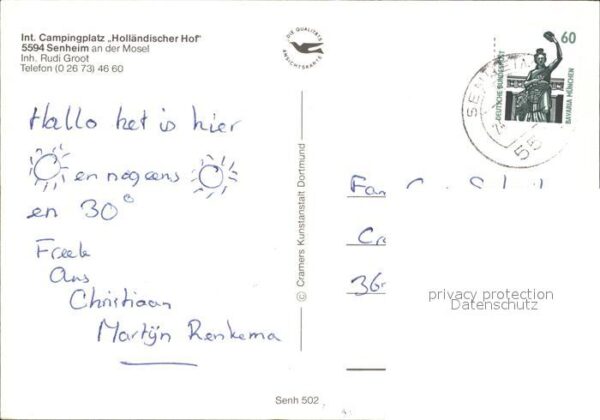 Int. Campingplatz „Holländischer Hof"
5594 Senheim an der Mosel
Inh. Rudi Groot
Telefon (0 26 73) 46 60
DIE QUALITÄTS
ANSICHTSKARTE
60
DEUTSCHE BUNDESPOST
BAVARIA MÜNCHEN
Hallo het is hier
en nog eens
en 30°
Freek
Ans
Christiaan
Martijn Renkema
© Cramers Kunstanstalt Dortmund
Fam
privacy protection
Datenschutz
Senh 502